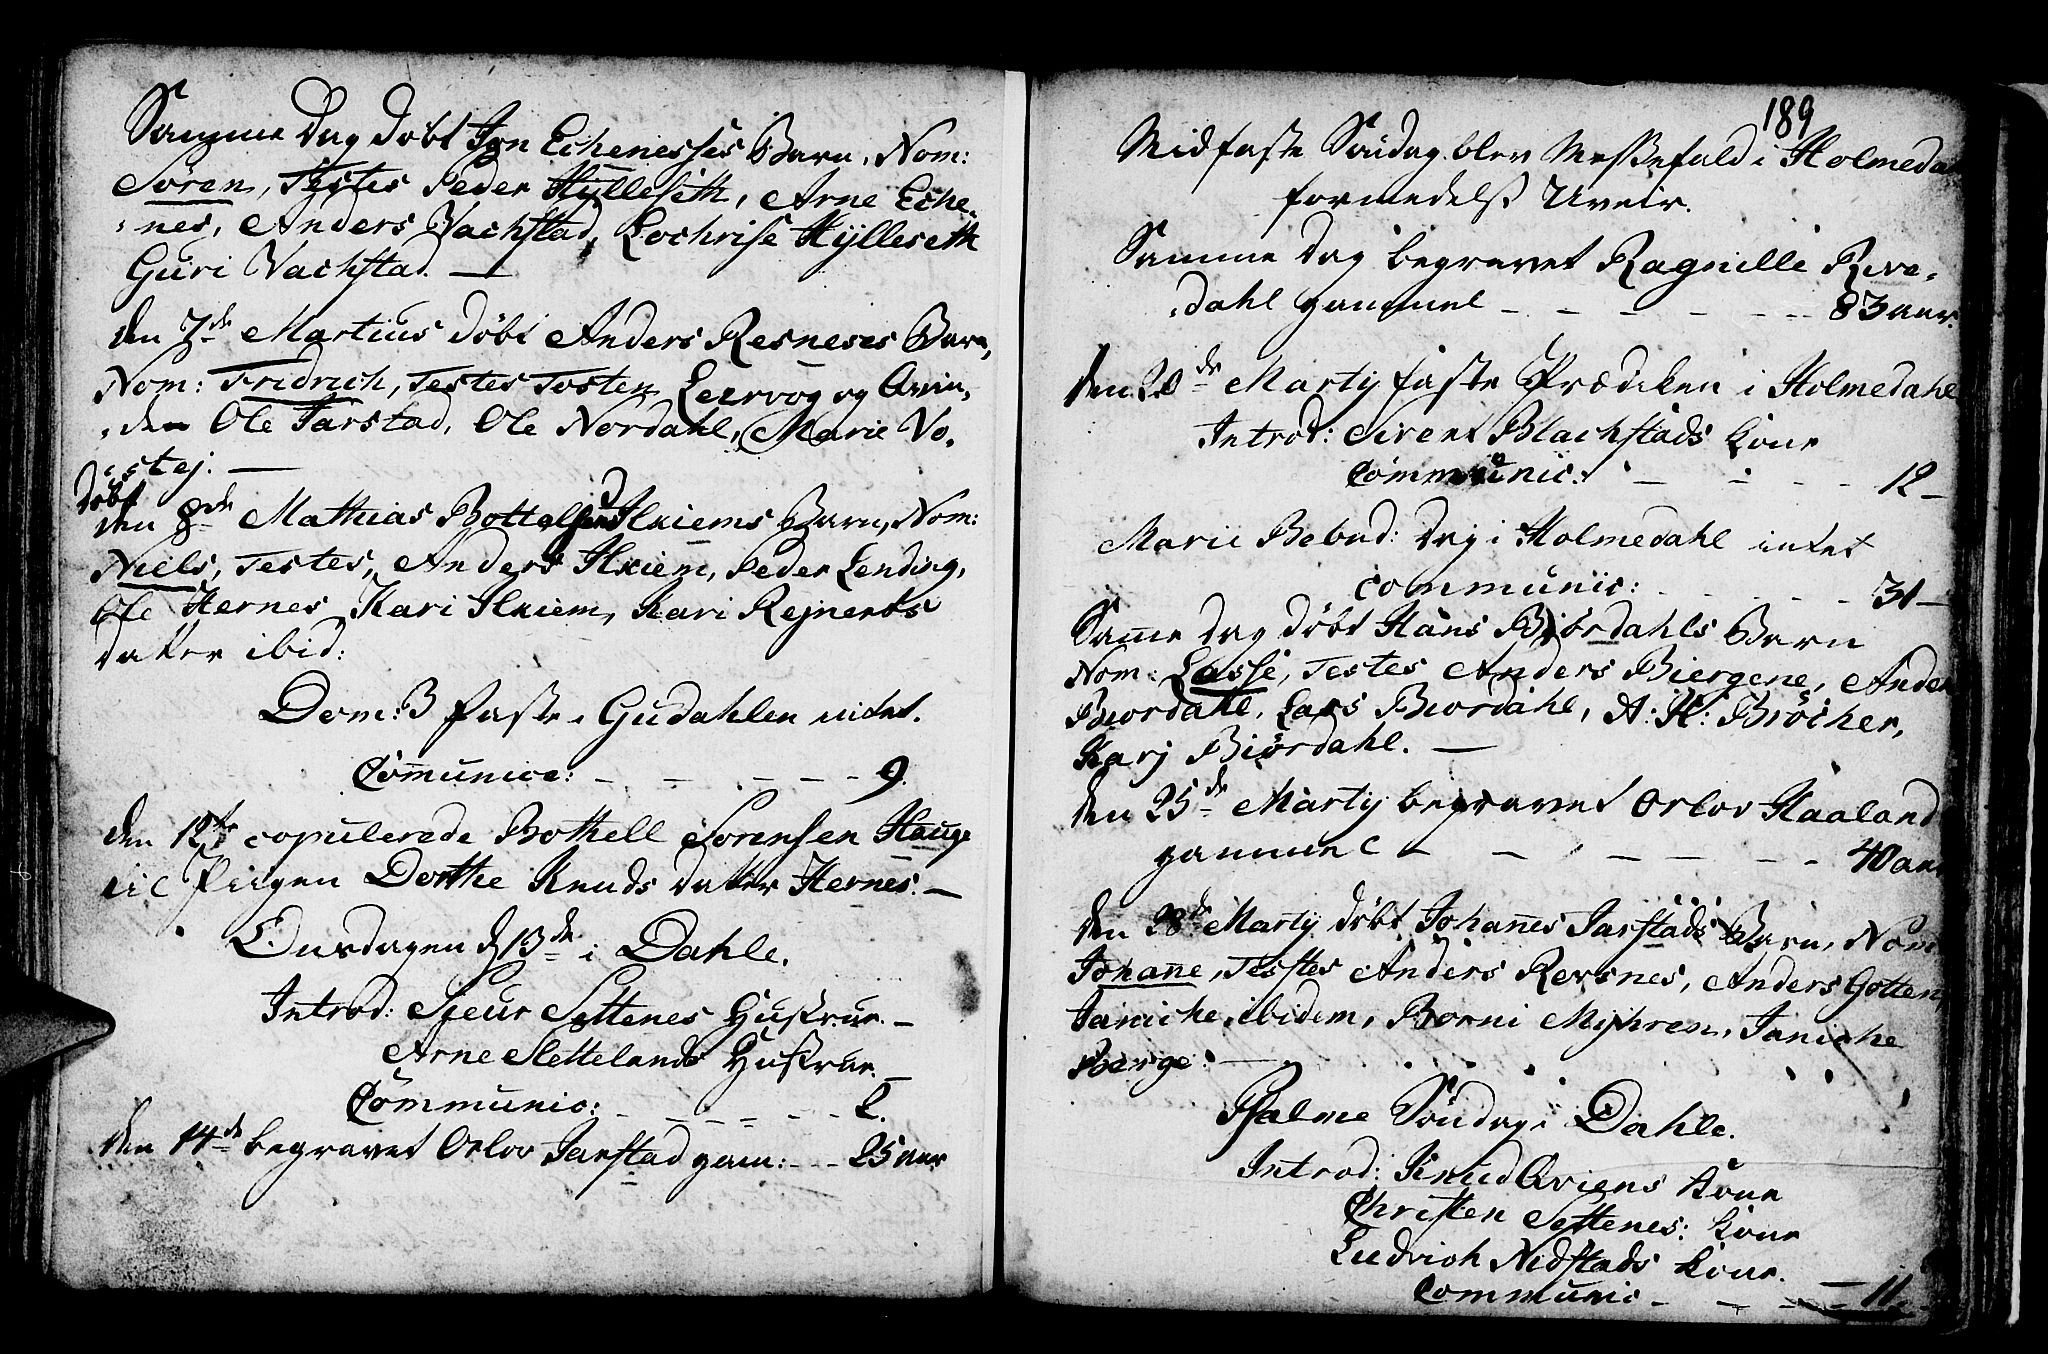 Samme Dag døbt Jon Echenesses Barn, Nom:
Sören, Testes Peder Hylleseth, Arne Eche-
nes, Anders Vachstad, Lochrise Hÿlleseth
Guri Vachstad. —
den 7de Martius døbt Anders Resneses Barn,
Nom: Fridrich, Testes Tosten Leervog og Qvin-
den Ole Jarstad, Ole Nordahl, Marie Vo-
stej. —
døbt
den 8de Mathias Bottolfsens Hxiems Barn, Nom:
Niels, Testes, Anders Hxiem, Peder Lending,
Ole Hernes, Kari Hxiem, Kari Rejnerts
datter ibid:
Dom: 3 faste i Gudahlen intet.
Com̄unice: - - - - - 9.
den 12te copulerede Bothell Sörensen Hauge
til Pigen Dorthe Knuds datter Hernes. —
Onsdagen d 13de i Dahle.
Introd: Sjeur Settenes Hustrue. —
Arne Slettelands Hustrue. —
Communic: - - - - - 2.
den 14de begravet Orlov Jarstad gam: - - 25 aar
189
Midfaste Söndag blev Messefald i Holmedahl
formedelst Uveir.
Samme Dag begravet Ragnille Rive-
dahl gammel - - - - - - 83 aar.
den 20de Martij faste Prædiken i Holmedahl
Introd: Sirent Blachstads Kone
Communic: - - - - - 12 —
Marie Bebud: Dag i Holmedahl intet
communic: - - - - - 31 —
Sam̄e Dag døbt Hans Biördahls Barn
Nom: Lasse, Testes Anders Biergene, Anders
Biordahl, Lars Biordahl, A: H: Bröcher,
Karj Biördahl. —
den 25de Martij begravet Orlov Haaland
gammel - - - - - - 40 aar
den 28de Martij døbt Johan̄es Jarstads Barn, Nom:
Johan̄e, Testes Anders Reesnes, Anders Gotten,
Janiche ibidem, Borni Myhren, Janiche
Berge: —
Palme Söndag i Dahle.
Introd: Knud Qviens Kone
Christen Settenes: Kone
Ludrich Nidstads Kone.
Communic - - - - 11.